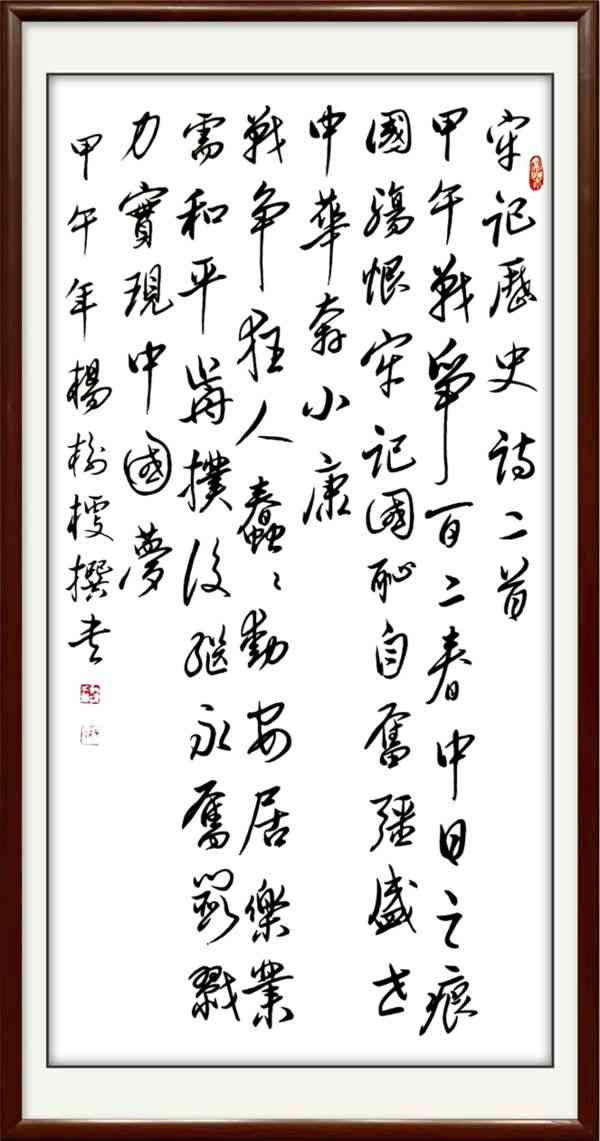 牢记歷史诗二首
甲午戰爭百二春中日之痕
國殤恨牢记國恥自奮彊盛世
中華奔小康
戰争狂人蠢〻動安居樂業
需和平歬撲後繼永奮鬥戮
力實現中國夢
甲午年楊樹撰书